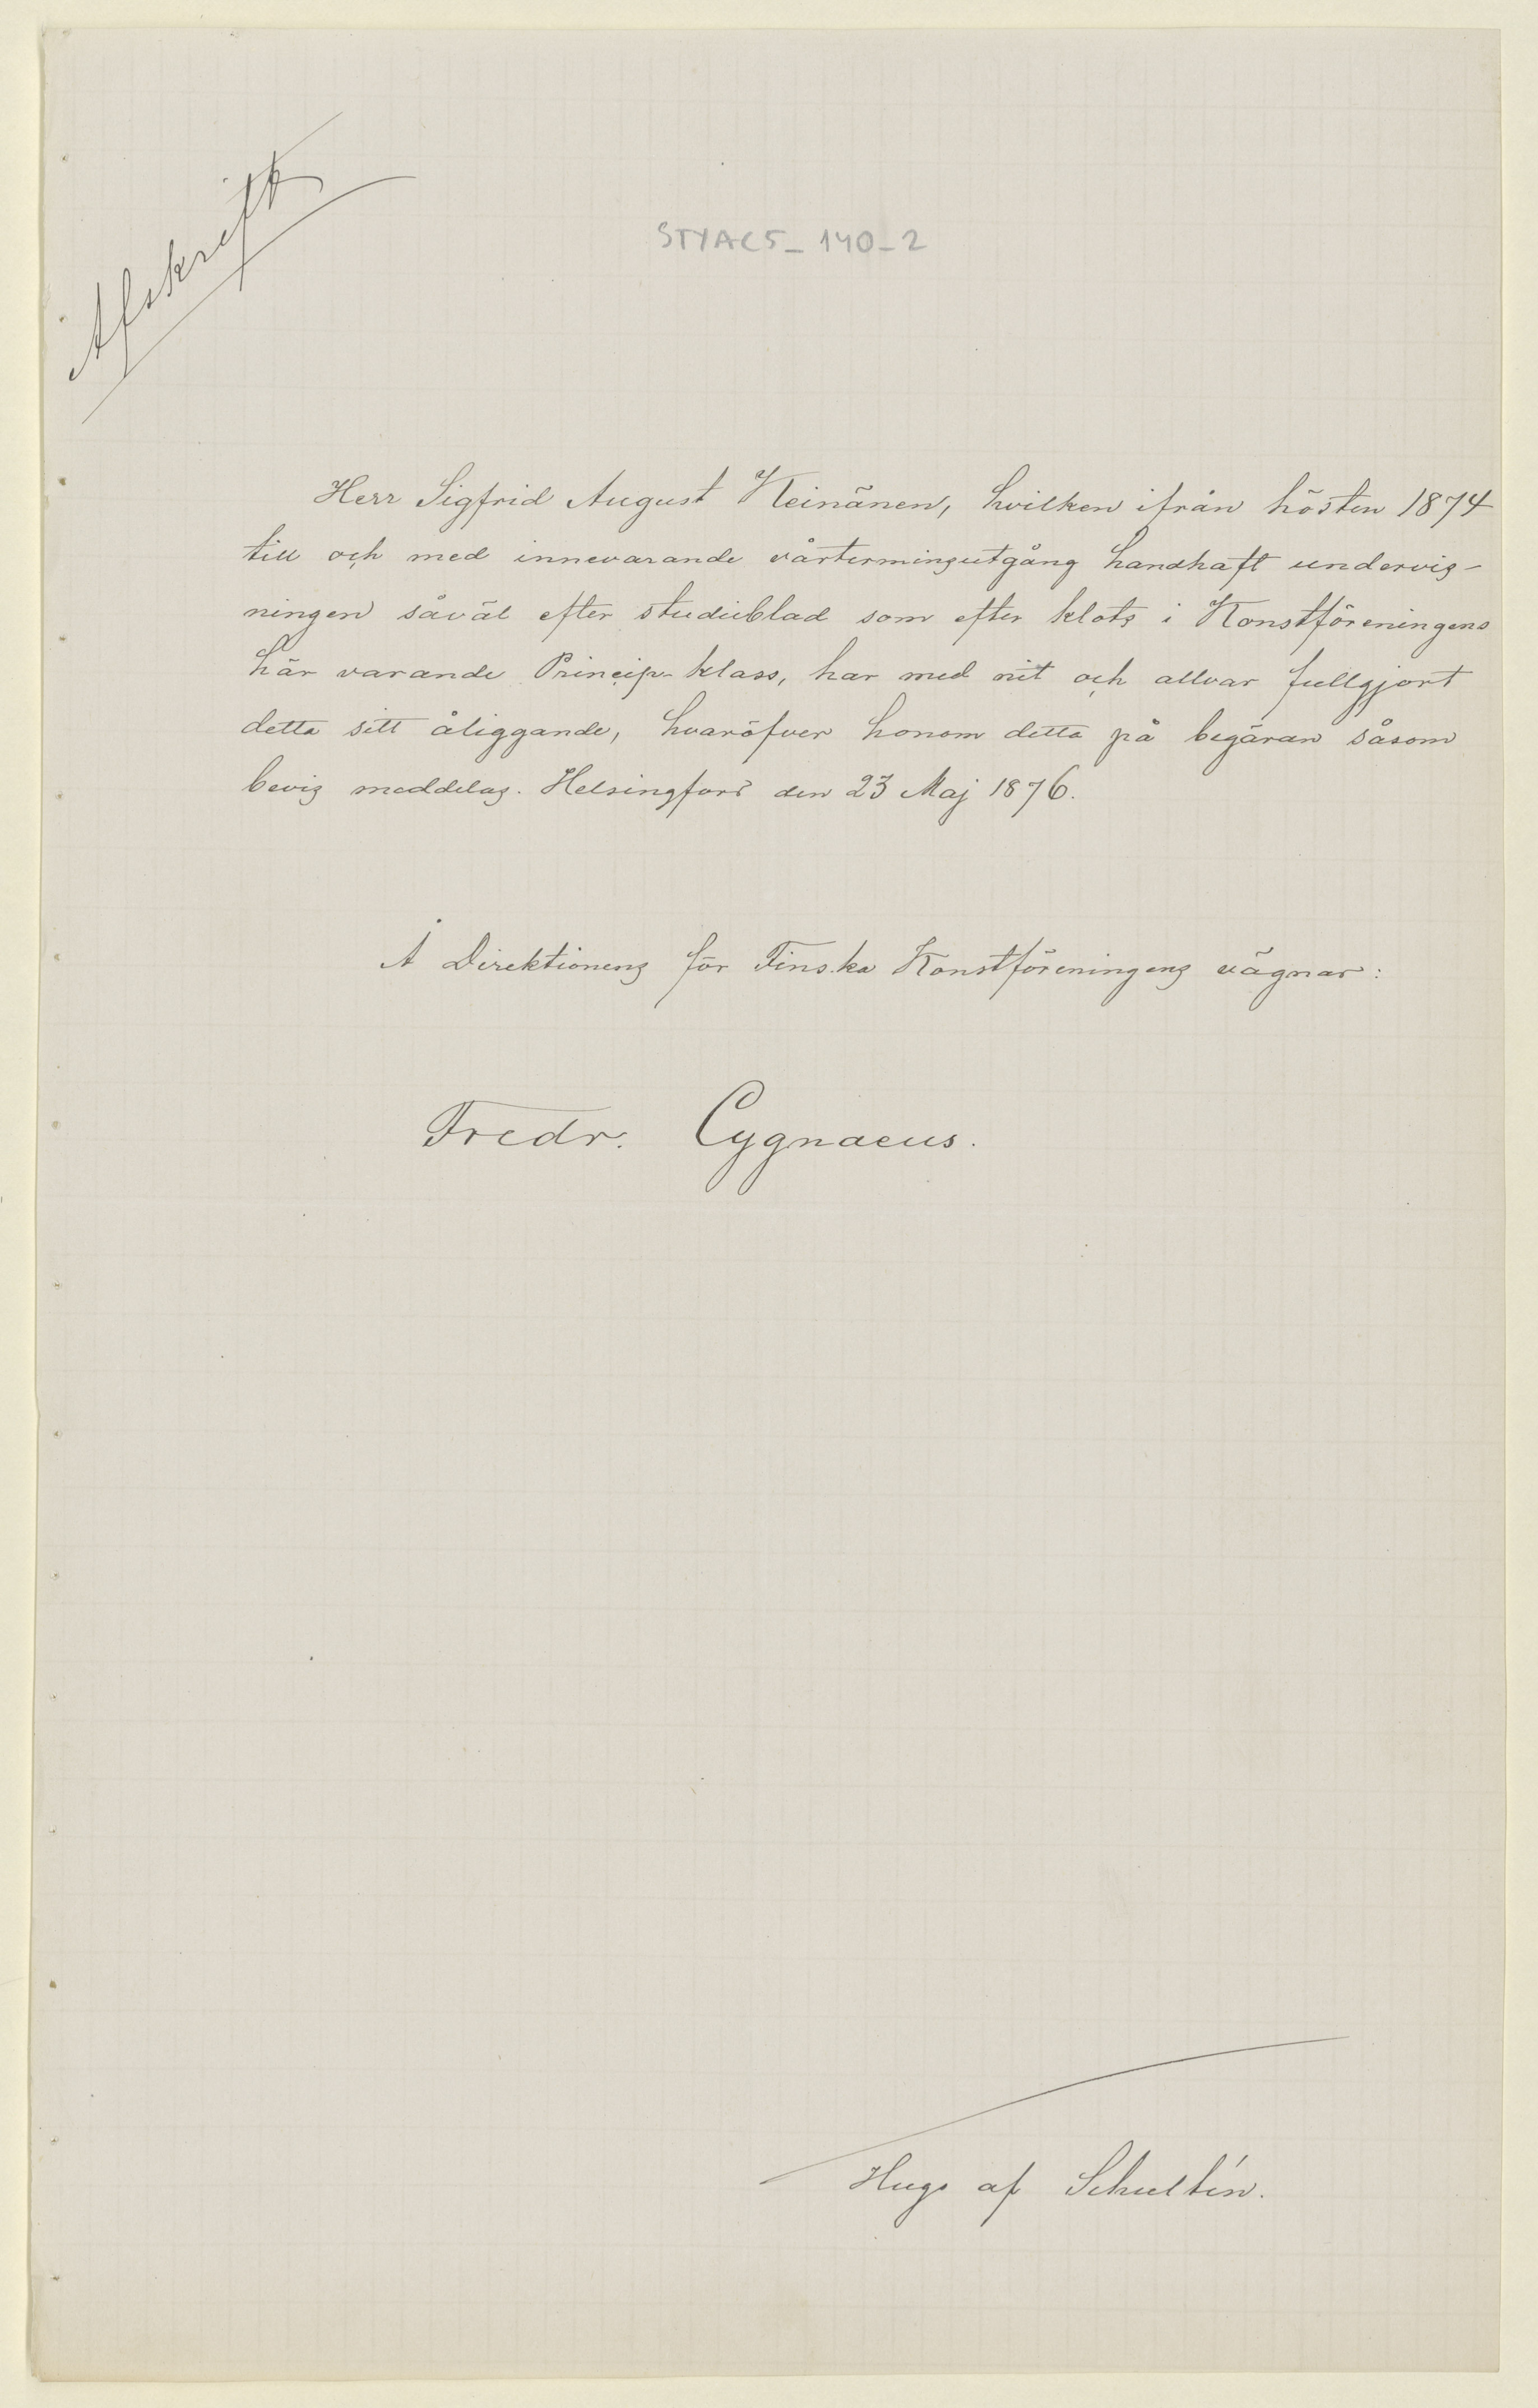 Afskrift
STYAC5_140_2
Herr Sigfrid August Keinänen, hvilken ifrån hösten 1874
till och med innevarande vårterminsutgång handhaft undervis-
ningen såväl efter studieblad som efter klots i Konstföreningens
här varande Princip-klass, har med nit och allvar fullgjort
detta sitt åliggande, hvaröfver honom detta på begäran såsom
bevis meddelas. Helsingfors den 23 Maj 1876.
Å Direktionens för Finska Konstföreningens vägnar:
Fredr. Cygnaeus.
Hugo af Schultén.